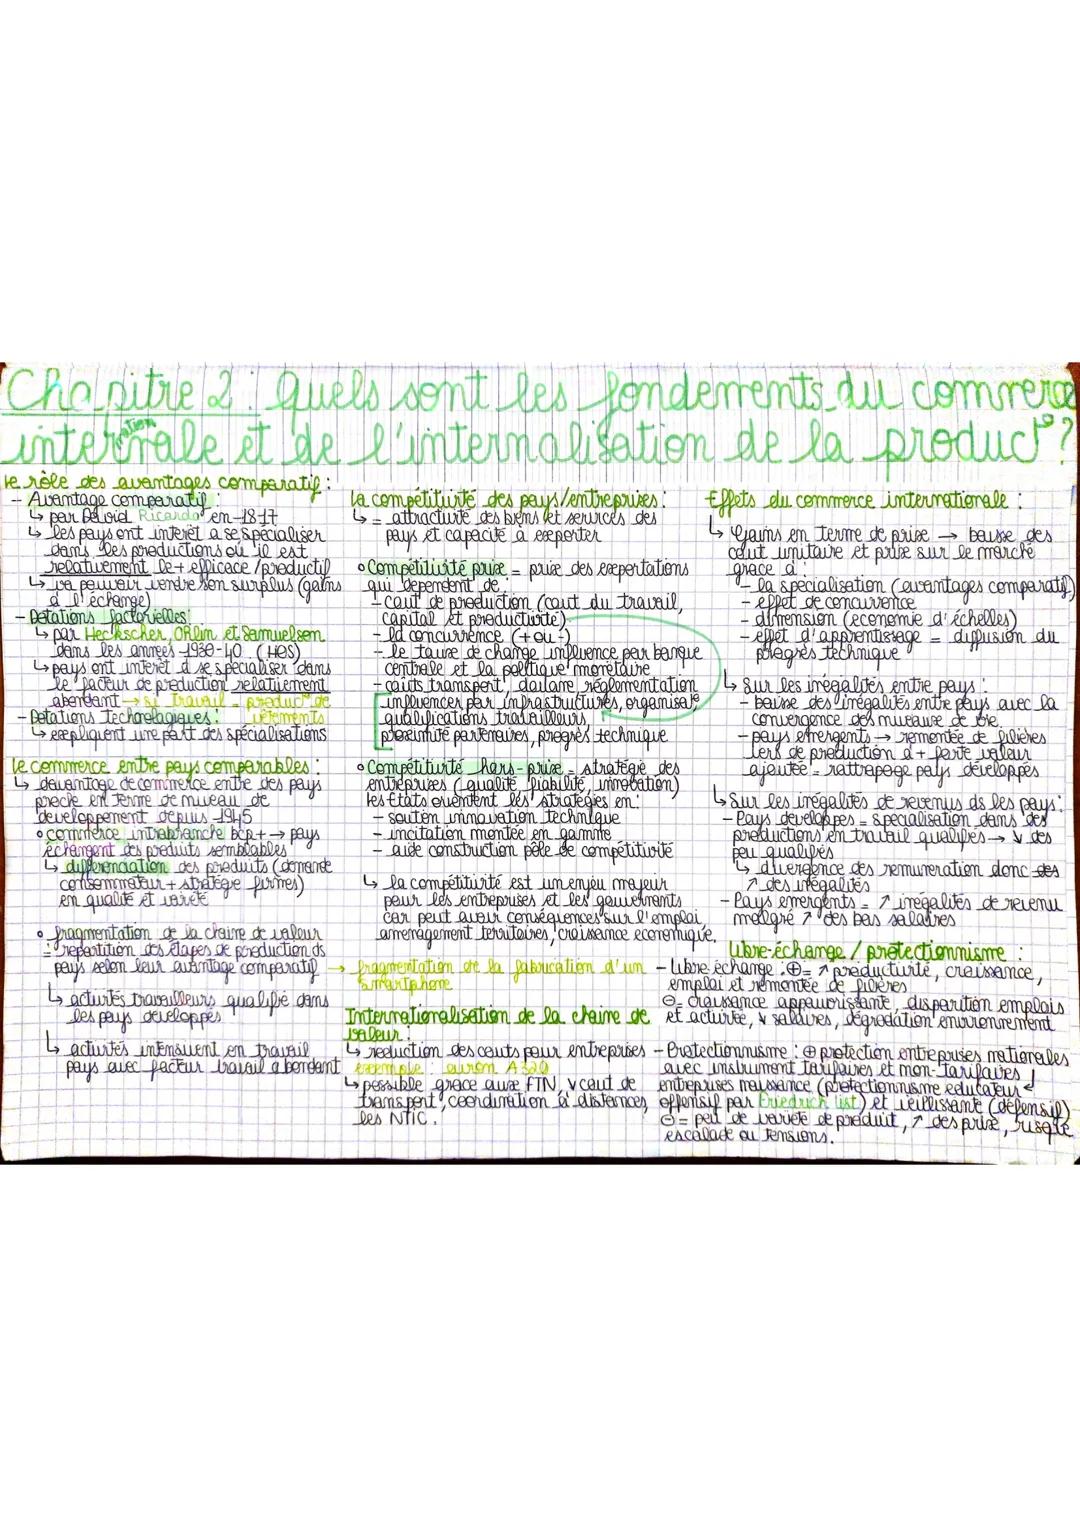 Chapitre 2 : Quels sont les fondements du commerce
internationale et de l'internalisation de la product° ?
le rôle des avantages comparatif :
- Avantage comparatif :
↳ par David Ricardo en 1817
↳ les pays ont intérêt a se spécialiser
dans les productions où il est
relativement le + efficace / productif
↳ va pouvoir vendre son surplus (gains
à l'échange)
- Dotations factorielles :
↳ par Heckscher, Ohlin et Samuelson
dans les années 1930-40. (HOS)
↳ pays ont intérêt à se spécialiser dans
le facteur de production relativement
abondant → si travail = product° de
vêtements
- Dotations technologiques :
↳ expliquent une part des spécialisations
le commerce entre pays comparables :
↳ davantage de commerce entre des pays
proche en terme de niveau de
développement depuis 1945
° commerce intrabranche bcp + → pays
échangent des produits semblables
↳ différenciation des produits (demande
consommateur + stratégie firmes)
en qualité et variété
° fragmentation de la chaine de valeur
= répartition des étapes de production ds
pays selon leur avantage comparatif → fragmentation de la fabrication d'un
smartphone
↳ activités travailleurs qualifié dans
les pays développés
↳ activités intensivent en travail
pays avec facteur travail abondant
la compétitivité des pays/entreprises :
↳ = attractivité des biens et services des
pays et capacité à exporter
° Compétitivité prix = prix des exportations
qui dependent de :
- cout de production (cout du travail,
capital et productivité)
- la concurrence (+ ou -)
- le taux de change influence par banque
centrale et la politique monétaire
- coûts transport, douane, réglementation
influences par infrastructures, organisat°
qualifications travailleurs,
proximité partenaires, progrès technique
° Compétitivté hors-prix = stratégie des
entreprises (qualité, fiabilité, innovation)
les Etats orientent les stratégies en :
- soutien innovation technique
- incitation montée en gamme
- aide construction pôle de compétitivité
↳ la compétitivité est un enjeu majeur
pour les entreprises et les gouvernents
car peut avoir conséquences sur l'emploi,
amenagement territoires, croissance economique.
Internationalisation de la chaine de
valeur :
↳ reduction des couts pour entreprises
exemple : avion A320
↳ possible grace aux FTN, ↘ cout de
transport, coordination à distances,
les NTIC.
Effets du commerce internationale :
↳ Gains en terme de prix → baisse des
coût unitaire et prix sur le marché
grace à :
- la spécialisation (avantages comparatif)
- effet de concurrence
- dimension (economie d'échelles)
- effet d'apprentissage = diffusion du
progrès technique
↳ Sur les inégalités entre pays :
- baisse des inégalités entre pays avec la
convergence des niveaux de vie.
- pays émergents → remontée de filières
vers de production à + forte valeur
ajoutée = rattrapage pays développés
↳ Sur les inégalités de revenus ds les pays :
- Pays développes = spécialisation dans des
productions en travail qualifiés → ↘ des
peu qualifiés
↳ divergence des remuneration donc des
↗ des inégalités
- Pays émergents = ↗ inégalités de revenu
malgré ↗ des bas salaires
Libre-échange / protectionnisme :
- Libre échange : ⊕ = ↗ productivité, croissance,
emploi et remontée de filières
⊖ = croissance appauvrissante, disparition emplois
et activitée, ↘ salaires, dégradation environnement
- Protectionnisme : ⊕ protection entreprises nationales
avec instrument tarifaires et non-tarifaires
entreprises naissance (protectionnisme educateur
offensif par Friedrich List) et vieillissante (défensif)
⊖ = peu de variété de produit, ↗ des prix, risque
escalade ou tensions.